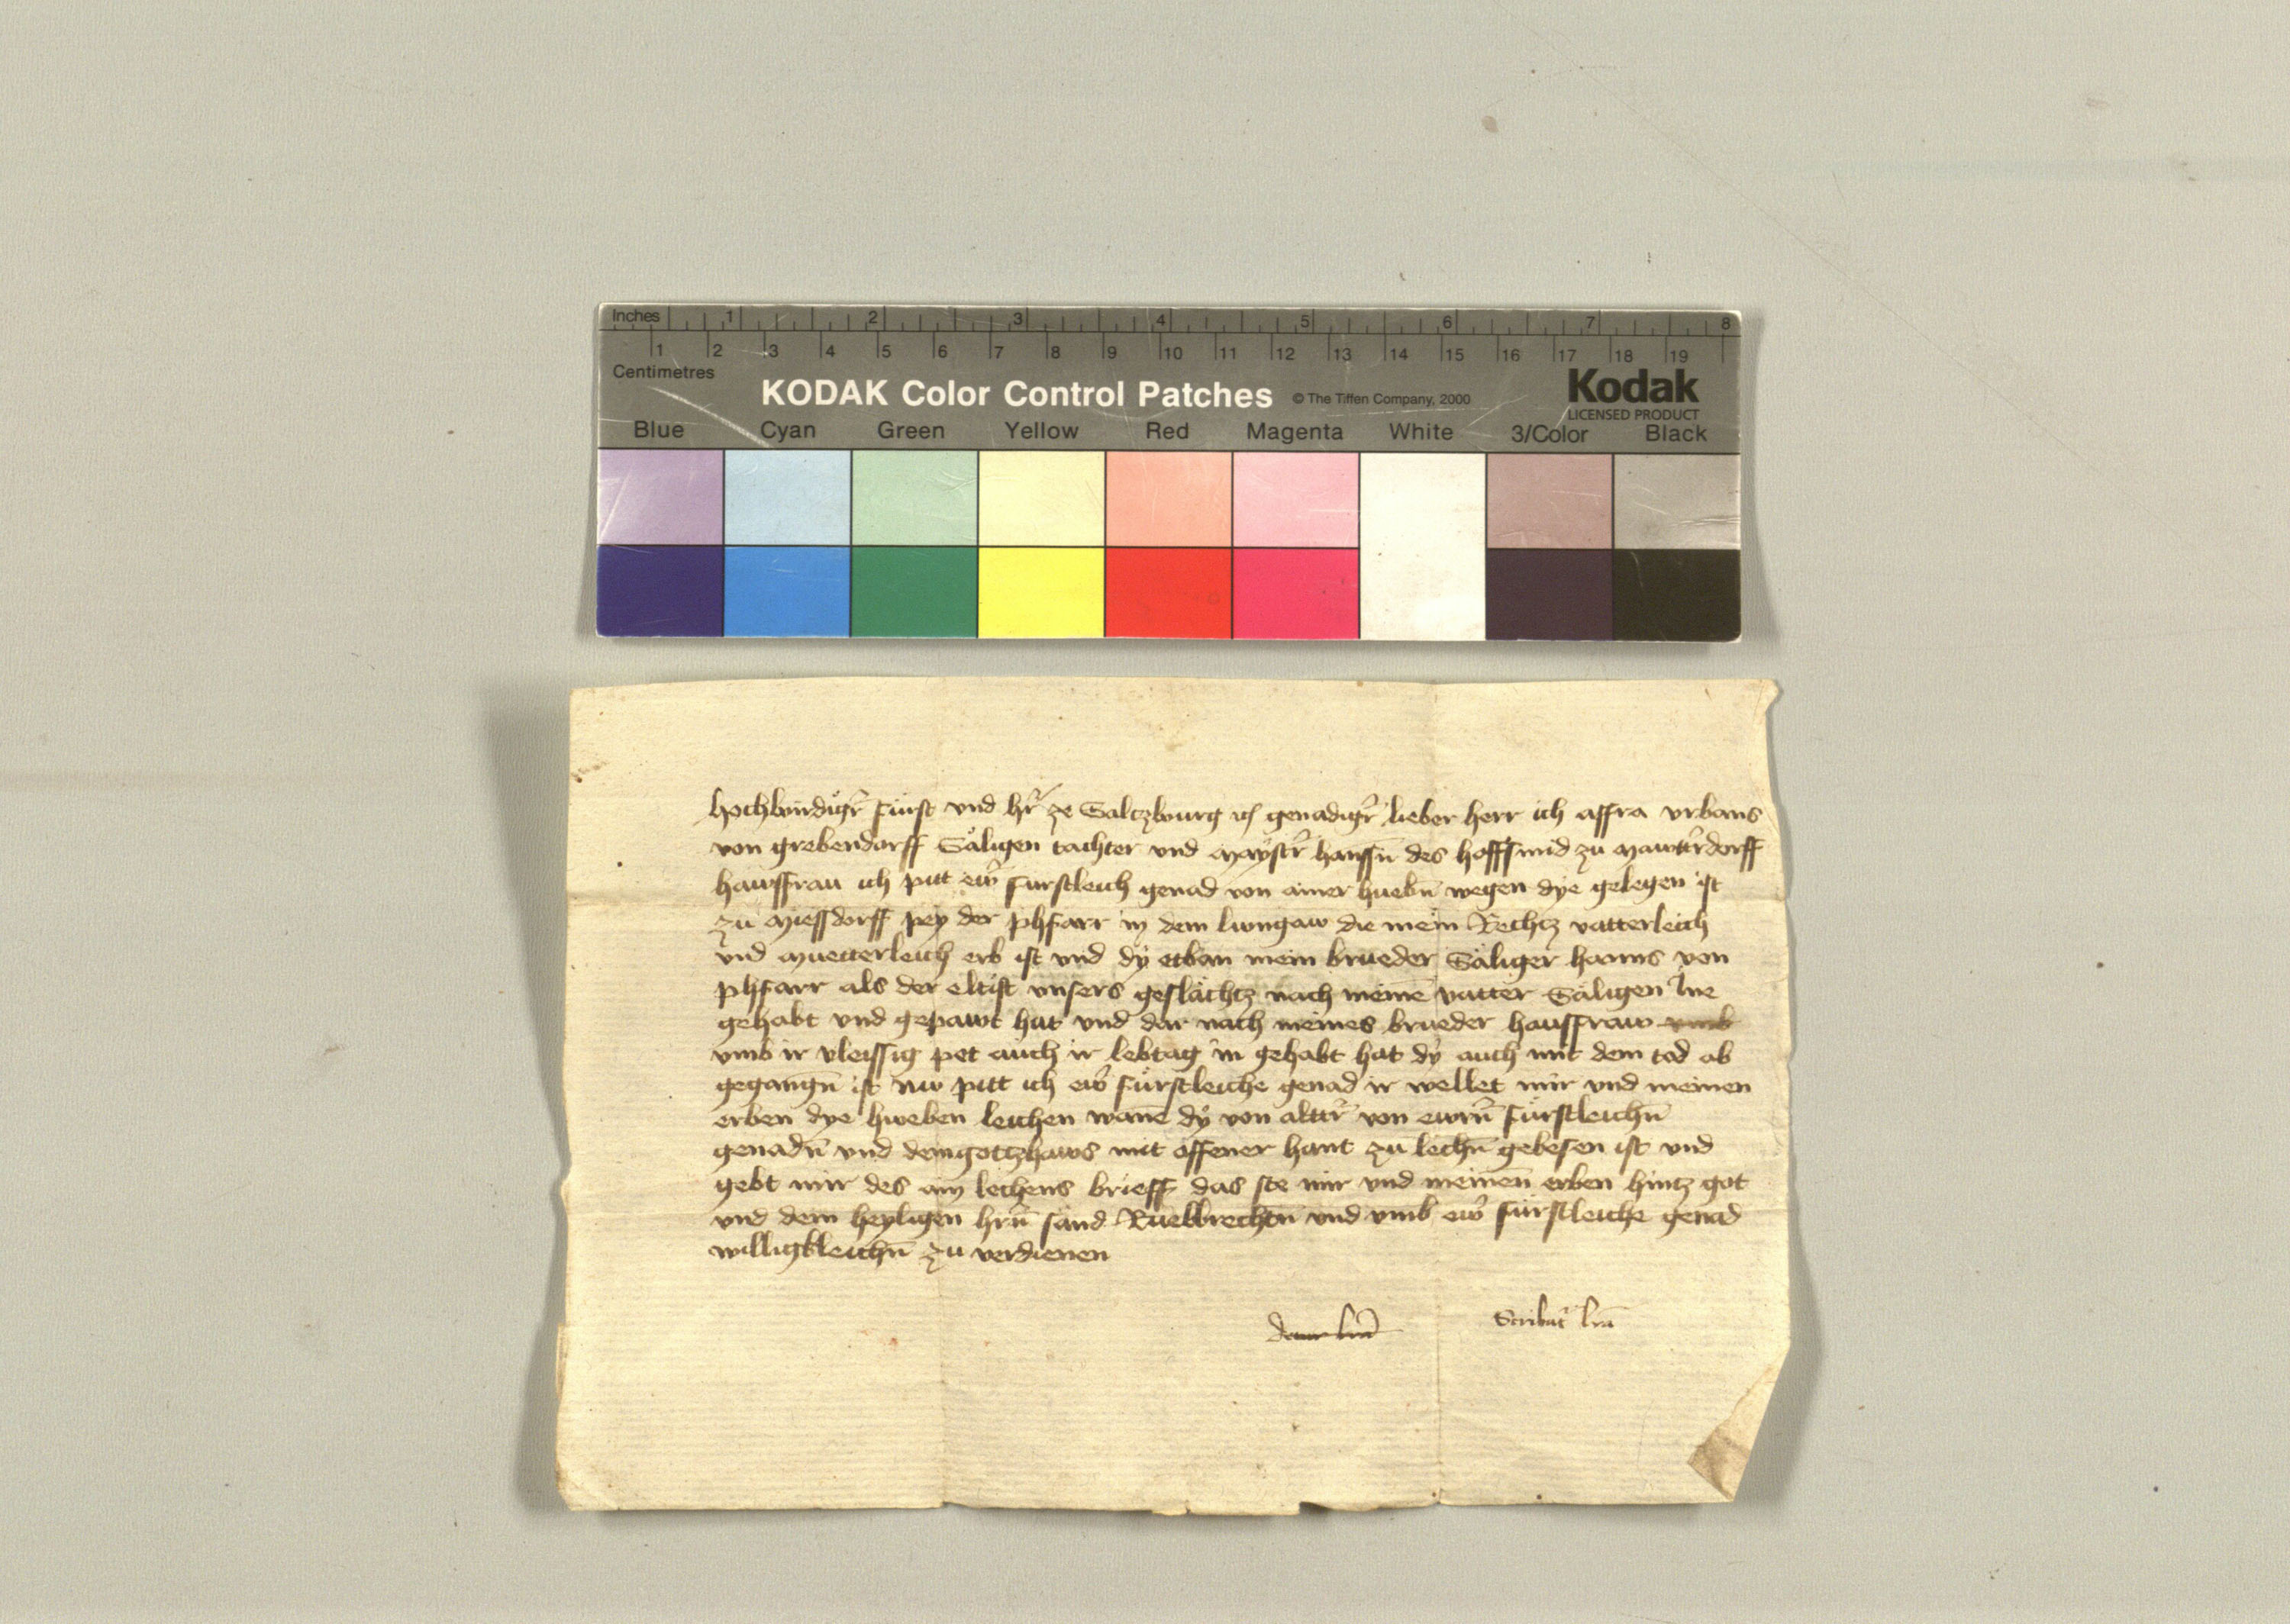 Inches 1 2 3 4 5 6 7 8
1 2 3 4 5 6 7 8 9 10 11 12 13 14 15 16 17 18 19
Centimetres
KODAK Color Control Patches © The Tiffen Company, 2000 Kodak
LICENSED PRODUCT
Blue Cyan Green Yellow Red Magenta White 3/Color Black
hochbirdigr̄ fürst vnd hr̄ ze Saltzburg genadigr̄ lieber herr ich affra vrbans
von grebendorff Säligen tachter vnd Maystr̄ hannsn̄ des hoffsmid zu Mawtr̄dorff
hawsfraw ich pitt ew̄ furstleich genad von ainer huebn̄ wegen dye gelegen ist
zu Miessdorff pey der phfarr in dem lungaw die mein Rechtz vatterleich
vnd Muetterleich erb ist vnd dy etban mein brueder Säliger hanns von
phfarr als der eltist vnsers geslächtz nach meinē vatter Säligen Inne
gehabt vnd gepawt hat vnd dar nach meines brueder hausfraw vmb
vmb ir vleissig pet auch ir lebtag in gehabt hat dy auch mit dem tod ab
gegangn̄ ist nw pitt ich ew̄ fürstleiche genad ir wellet mir vnd meinen
erben dye hueben leichen wanē dy von alttr̄ von ewrn̄ fürstleichn̄
genadn̄ vnd dem gottzhaws mit offener hant zu lechn̄ gebesen ist vnd
gebt mir des ain lechens brieff das ste mir vnd meinen erben hintz got
vnd dem heyligen hrn̄ sand Ruebbrechtn̄ vnd vmb ew̄ fürstleiche genad
willigkleichn̄ zu verdienen
Scribatr̄ lr̄a